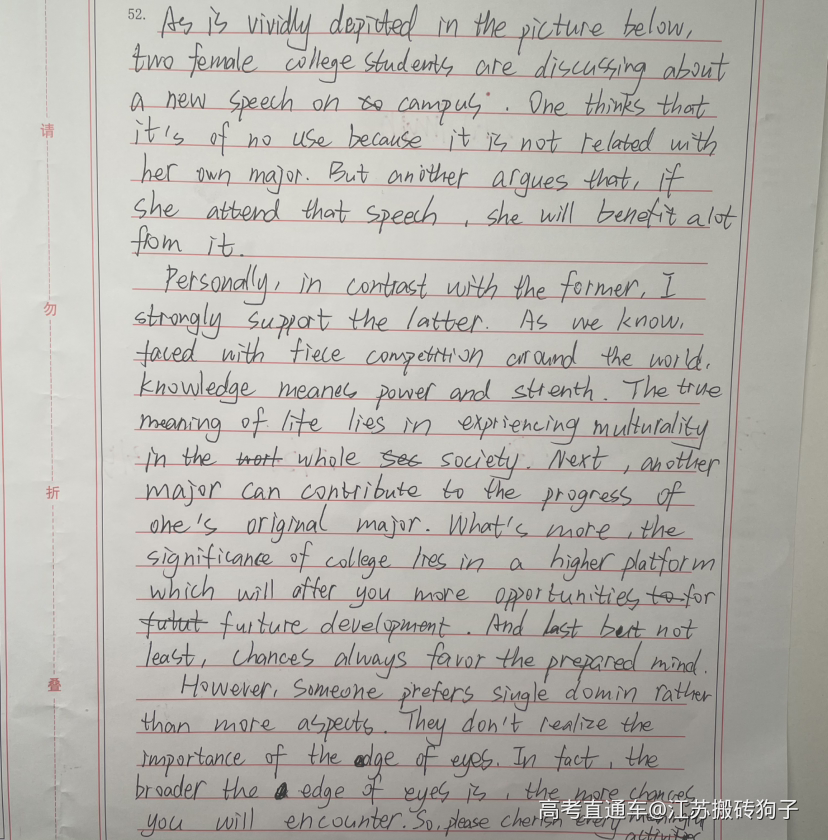 52. As is vividly depicted in the picture below,
two female college students are discussing about
a new speech on to campus. One thinks that
it's of no use because it is not related with
her own major. But another argues that, if
she attend that speech, she will benefit a lot
from it.
Personally, in contrast with the former, I
strongly support the latter. As we know,
faced with fiece competition around the world,
knowledge meanes power and strenth. The true
meaning of life lies in expriencing multurality
in the wort whole sec society. Next, another
major can contribute to the progress of
one's original major. What's more, the
significance of college lies in a higher platform
which will offer you more opportunities to for
futut furture development. And last but not
least, chances always favor the prepared mind.
However, someone prefers single domin rather
than more aspects. They don't realize the
importance of the edge of eyes. In fact, the
broader the edge of eyes is, the more chances
you will encounter. So, please cherish every
activities
请
勿
折
叠
高考直通车@江苏搬砖狗子